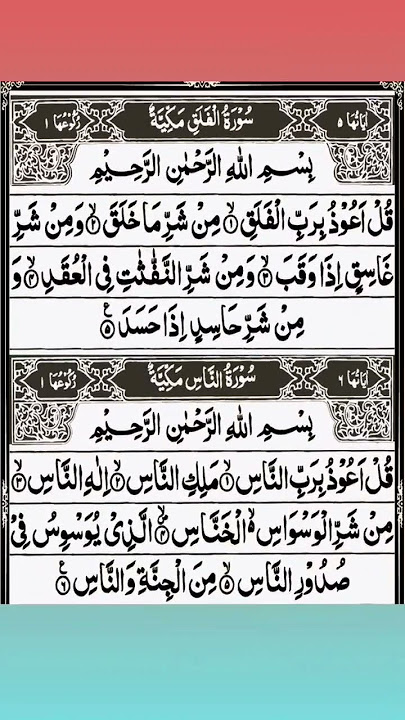 اٰيَاتُهَا ٥ سُوْرَةُ الْفَلَقِ مَكِّيَّةٌ رُكُوْعُهَا ١
بِسْمِ اللّٰهِ الرَّحْمٰنِ الرَّحِيْمِ
قُلْ اَعُوْذُ بِرَبِّ الْفَلَقِ ۙ﴿١﴾ مِنْ شَرِّ مَا خَلَقَ ۙ﴿٢﴾ وَمِنْ شَرِّ
غَاسِقٍ اِذَا وَقَبَ ۙ﴿٣﴾ وَمِنْ شَرِّ النَّفّٰثٰتِ فِى الْعُقَدِ ۙ﴿٤﴾ وَ
مِنْ شَرِّ حَاسِدٍ اِذَا حَسَدَ ﴿٥﴾ ع
اٰيَاتُهَا ٦ سُوْرَةُ النَّاسِ مَكِّيَّةٌ رُكُوْعُهَا ١
بِسْمِ اللّٰهِ الرَّحْمٰنِ الرَّحِيْمِ
قُلْ اَعُوْذُ بِرَبِّ النَّاسِ ۙ﴿١﴾ مَلِكِ النَّاسِ ۙ﴿٢﴾ اِلٰهِ النَّاسِ ۙ﴿٣﴾
مِنْ شَرِّ الْوَسْوَاسِ ۙ الْخَنَّاسِ ۙ﴿٤﴾ الَّذِىْ يُوَسْوِسُ فِىْ
صُدُوْرِ النَّاسِ ۙ﴿٥﴾ مِنَ الْجِنَّةِ وَالنَّاسِ ﴿٦﴾ ع